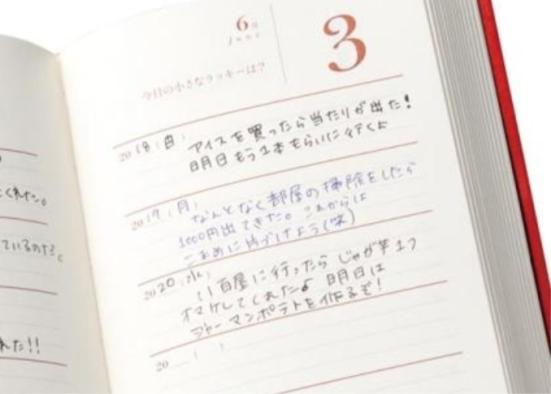 6月
June
3
今日の小さなラッキーは?
2018(日) アイスを買ったら当たりが出た!
明日もう1本もらいに行くよ
2019(月) なんとなく部屋の掃除をしたら
1000円出てきた。これからは
こまめに片づけよう(笑)
2020(水)
八百屋に行ったらじゃが芋1つ
オマケしてくれたよ 明日は
ジャーマンポテトを作るぞ!
20 ( )
くれた。
ているのだろ。
れた!!